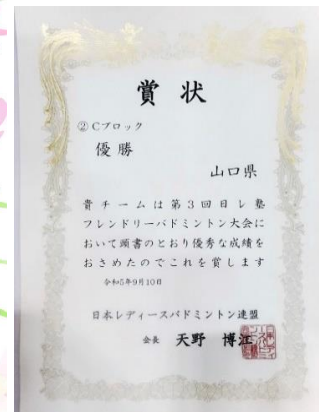 賞状
② Cブロック
優勝
山口県
貴チームは第3回日レ塾
フレンドリーバドミントン大会に
おいて頭書のとおり優秀な成績を
おさめたのでこれを賞します
令和5年9月10日
日本レディースバドミントン連盟
会長 天野 博江